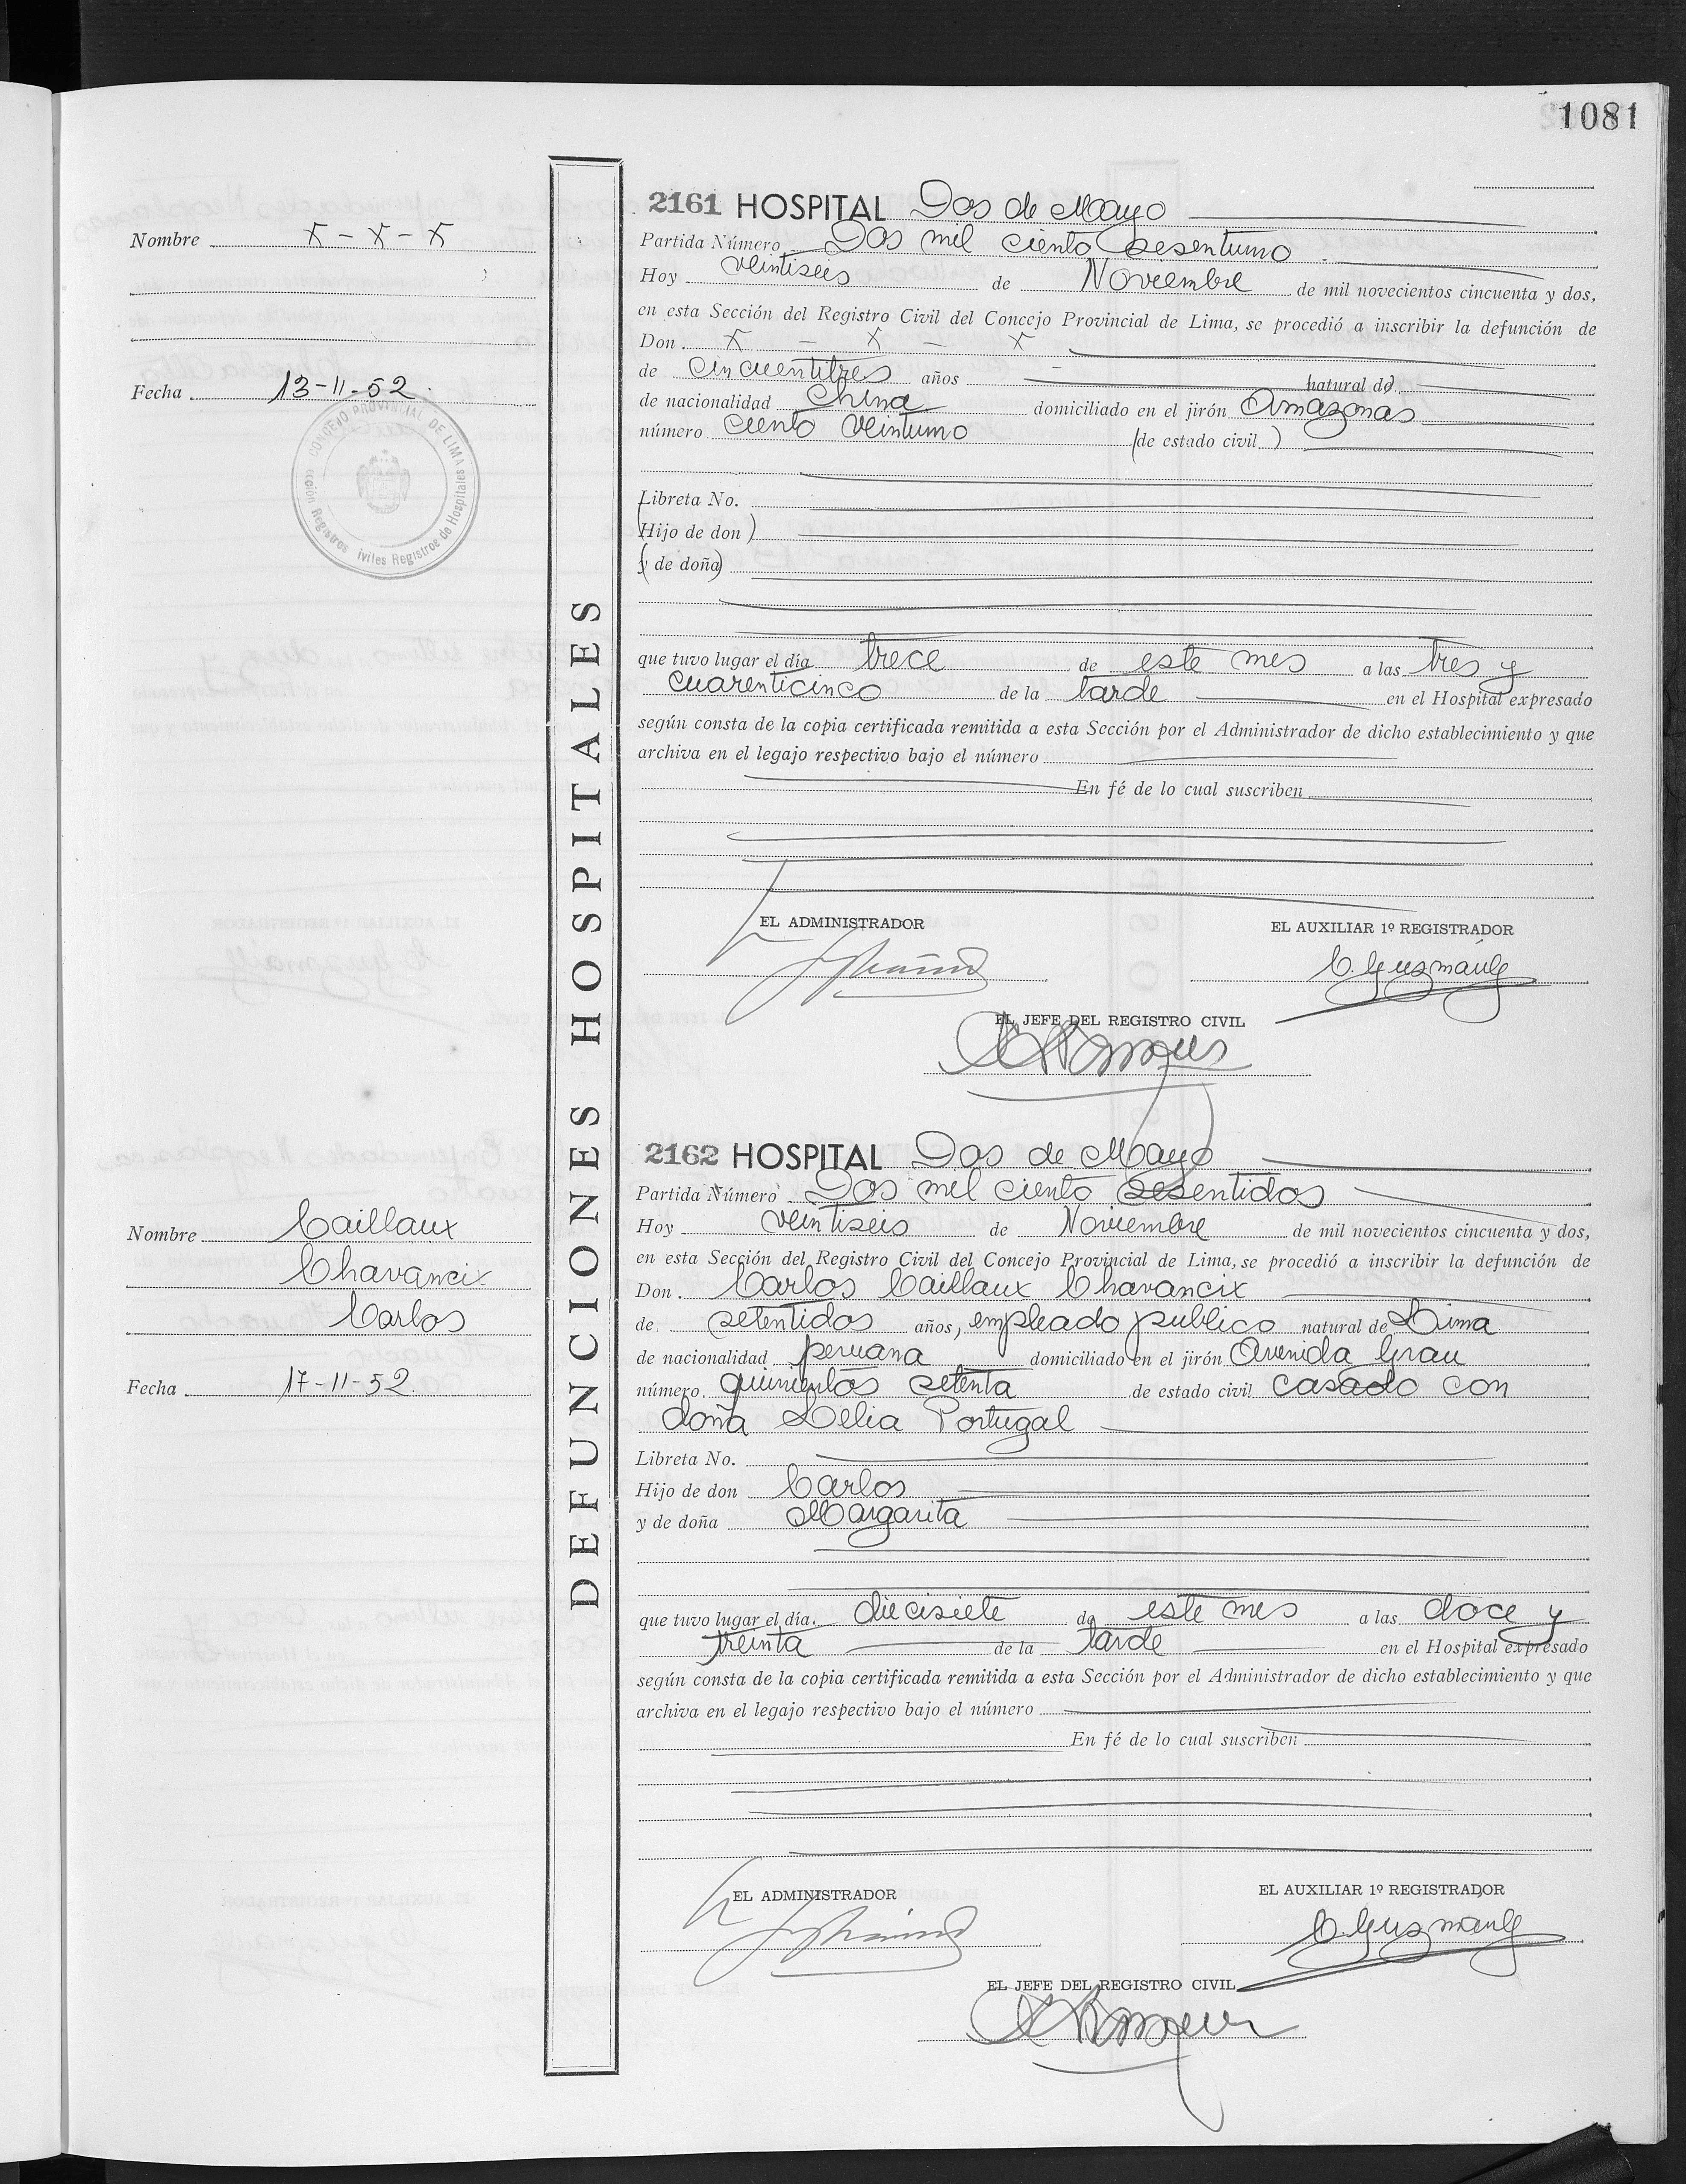 1081
Nombre x - x - x
Fecha 13-11-52.
CONCEJO PROVINCIAL DE LIMA
cción Registros iviles Registros de Hospitales
DEFUNCIONES HOSPITALES
2161 HOSPITAL Dos de Mayo
Partida Número Dos mil ciento sesentiuno
Hoy veintiseis de Noviembre de mil novecientos cincuenta y dos,
en esta Sección del Registro Civil del Concejo Provincial de Lima, se procedió a inscribir la defunción de
Don x - x - x
de cincuentitres años natural de
de nacionalidad China domiciliado en el jirón Amazonas
número ciento veintiuno (de estado civil)
Libreta No.
(Hijo de don)
(y de doña)
que tuvo lugar el día trece de este mes a las tres y
cuarenticinco de la tarde en el Hospital expresado
según consta de la copia certificada remitida a esta Sección por el Administrador de dicho establecimiento y que
archiva en el legajo respectivo bajo el número
En fé de lo cual suscriben
EL ADMINISTRADOR EL AUXILIAR 1º REGISTRADOR
EL JEFE DEL REGISTRO CIVIL
Nombre Caillaux
Chavancix
Carlos
Fecha 17-11-52.
2162 HOSPITAL Dos de Mayo
Partida Número Dos mil ciento sesentidos
Hoy veintiseis de Noviembre de mil novecientos cincuenta y dos,
en esta Sección del Registro Civil del Concejo Provincial de Lima, se procedió a inscribir la defunción de
Don Carlos Caillaux Chavancix
de setentidos años, empleado publico natural de Lima
de nacionalidad peruana domiciliado en el jirón Avenida Grau
número quinientos setenta de estado civil casado con
doña Delia Portugal
Libreta No.
Hijo de don Carlos
y de doña Margarita
que tuvo lugar el día diecisiete de este mes a las doce y
treinta de la tarde en el Hospital expresado
según consta de la copia certificada remitida a esta Sección por el Administrador de dicho establecimiento y que
archiva en el legajo respectivo bajo el número
En fé de lo cual suscriben
EL ADMINISTRADOR EL AUXILIAR 1º REGISTRADOR
EL JEFE DEL REGISTRO CIVIL